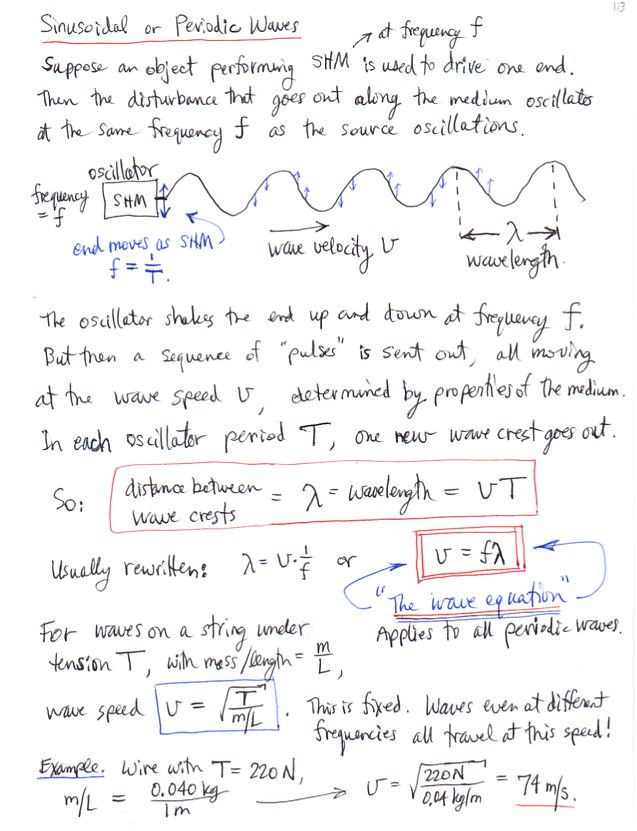 113
Sinusoidal or Periodic Waves
at frequency f
Suppose an object performing SHM is used to drive one end.
Then the disturbance that goes out along the medium oscillates
at the same frequency f as the source oscillations.
oscillator
frequency = f
SHM
end moves as SHM
f = 1/T.
wave velocity v
λ
wavelength.
The oscillator shakes the end up and down at frequency f.
But then a sequence of "pulses" is sent out, all moving
at the wave speed v, determined by properties of the medium.
In each oscillator period T, one new wave crest goes out.
So: distance between wave crests = λ = wavelength = vT
Usually rewritten: λ = v·1/f or v = fλ
"The wave equation"
Applies to all periodic waves.
For waves on a string under
tension T, with mass/length = m/L,
wave speed v = √(T/(m/L)). This is fixed. Waves even at different
frequencies all travel at this speed!
Example. Wire with T = 220 N,
m/L = 0.040 kg/1m → v = √(220N/0.04 kg/m) = 74 m/s.